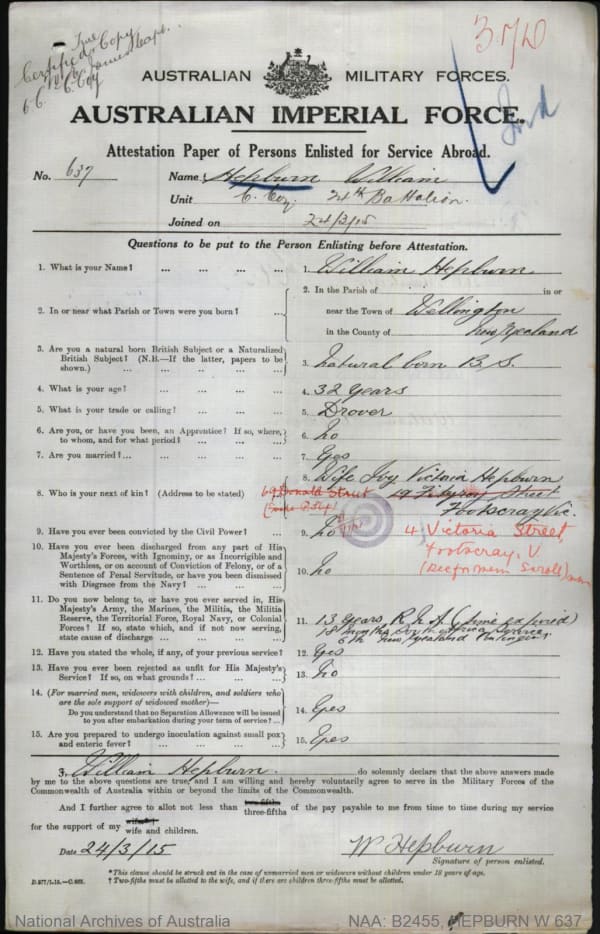 True
Certified Copy
C. Coy
370
AUSTRALIAN MILITARY FORCES.
AUSTRALIAN IMPERIAL FORCE.
Attestation Paper of Persons Enlisted for Service Abroad.
No. 637 Name Hepburn William
Unit C. Coy. 24th Battalion.
Joined on 24/3/15
Questions to be put to the Person Enlisting before Attestation.
1. What is your Name? ... ... ... ... 1. William Hepburn
2. In or near what Parish or Town were you born? ... 2. In the Parish of in or
near the Town of Wellington
in the County of New Zealand
3. Are you a natural born British Subject or a Naturalized
British Subject? (N.B.—If the latter, papers to be
shown.) ... ... ... ... 3. Natural born B. S.
4. What is your age? ... ... ... ... 4. 32 Years
5. What is your trade or calling? ... ... ... 5. Drover
6. Are you, or have you been, an Apprentice? If so, where,
to whom, and for what period? ... ... ... 6. No
7. Are you married? ... ... ... ... 7. Yes
8. Who is your next of kin? (Address to be stated) 8. Wife Ivy Victoria Hepburn
69 Donald Street 19 Street
Footscray Vic.
9. Have you ever been convicted by the Civil Power? ... 9. No
4 Victoria Street
Footscray, V
10. Have you ever been discharged from any part of His
Majesty's Forces, with Ignominy, or as Incorrigible and
Worthless, or on account of Conviction of Felony, or of a
Sentence of Penal Servitude, or have you been dismissed
with Disgrace from the Navy? ... ... ... 10. No
11. Do you now belong to, or have you ever served in, His
Majesty's Army, the Marines, the Militia, the Militia
Reserve, the Territorial Force, Royal Navy, or Colonial
Forces? If so, state which, and if not now serving,
state cause of discharge ... ... ... 11. 13 Years, R. N. A (time expired)
18 months South Africa Service
5th New Zealand Contingent
12. Have you stated the whole, if any, of your previous service? 12. Yes
13. Have you ever been rejected as unfit for His Majesty's
Service? If so, on what grounds? ... ... ... 13. No
14. (For married men, widowers with children, and soldiers who
are the sole support of widowed mother)—
Do you understand that no Separation Allowance will be issued
to you after embarkation during your term of service? ... 14. Yes
15. Are you prepared to undergo inoculation against small pox
and enteric fever? ... ... ... ... 15. Yes
I, William Hepburn. do solemnly declare that the above answers made
by me to the above questions are true, and I am willing and hereby voluntarily agree to serve in the Military Forces of the
Commonwealth of Australia within or beyond the limits of the Commonwealth.
And I further agree to allot not less than two-fifths three-fifths of the pay payable to me from time to time during my service
for the support of my wife* wife and children.
Date 24/3/15 W Hepburn
Signature of person enlisted.
* This clause should be struck out in the case of unmarried men or widowers without children under 18 years of age.
D.577/1.15.—C.633. † Two-fifths must be allotted to the wife, and if there are children three-fifths must be allotted.
National Archives of Australia NAA: B2455, HEPBURN W 637